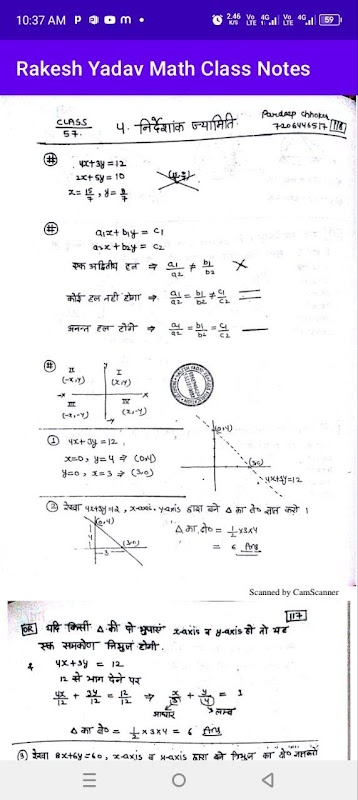 10:37 AM
2.46 K/S Vo LTE 4G Vo LTE 4G 59
Rakesh Yadav Math Class Notes
CLASS 57.
4. निर्देशांक ज्यामिति
Pardeep Chhoker
7206446517 116
# 4x+3y=12
2x+5y=10
x=15/7, y=8/7
# a1x+b1y = c1
a2x+b2y = c2
एक अद्वितीय हल ⇒ a1/a2 ≠ b1/b2
कोई हल नहीं होगा ⇒ a1/a2 = b1/b2 ≠ c1/c2
अनन्त हल होंगे ⇒ a1/a2 = b1/b2 = c1/c2
#
II (-x,y) I (x,y)
-x x
III (-x,-y) IV (x,-y)
-y
① 4x+3y=12
x=0, y=4 ⇒ (0,4)
y=0, x=3 ⇒ (3,0)
(0,4)
(3,0)
4x+3y=12
② रेखा 4x+3y=12, x-axis, y-axis द्वारा बने Δ का क्षे० ज्ञात करो।
(0,4)
4
(3,0)
3
Δ का क्षे० = 1/2×3×4
= 6 Ans
Scanned by CamScanner
117
OR यदि किसी Δ की दो भुजाएं x-axis व y-axis हो तो वह
एक समकोण त्रिभुज होगी.
4x+3y = 12
12 से भाग देने पर
4x/12 + 3y/12 = 12/12 ⇒ x/3 + y/4 = 1
आधार लम्ब
Δ का क्षे० = 1/2×3×4 = 6 Ans
③ रेखा 8x+6y=60, x-axis व y-axis द्वारा बने त्रिभुज का क्षे०